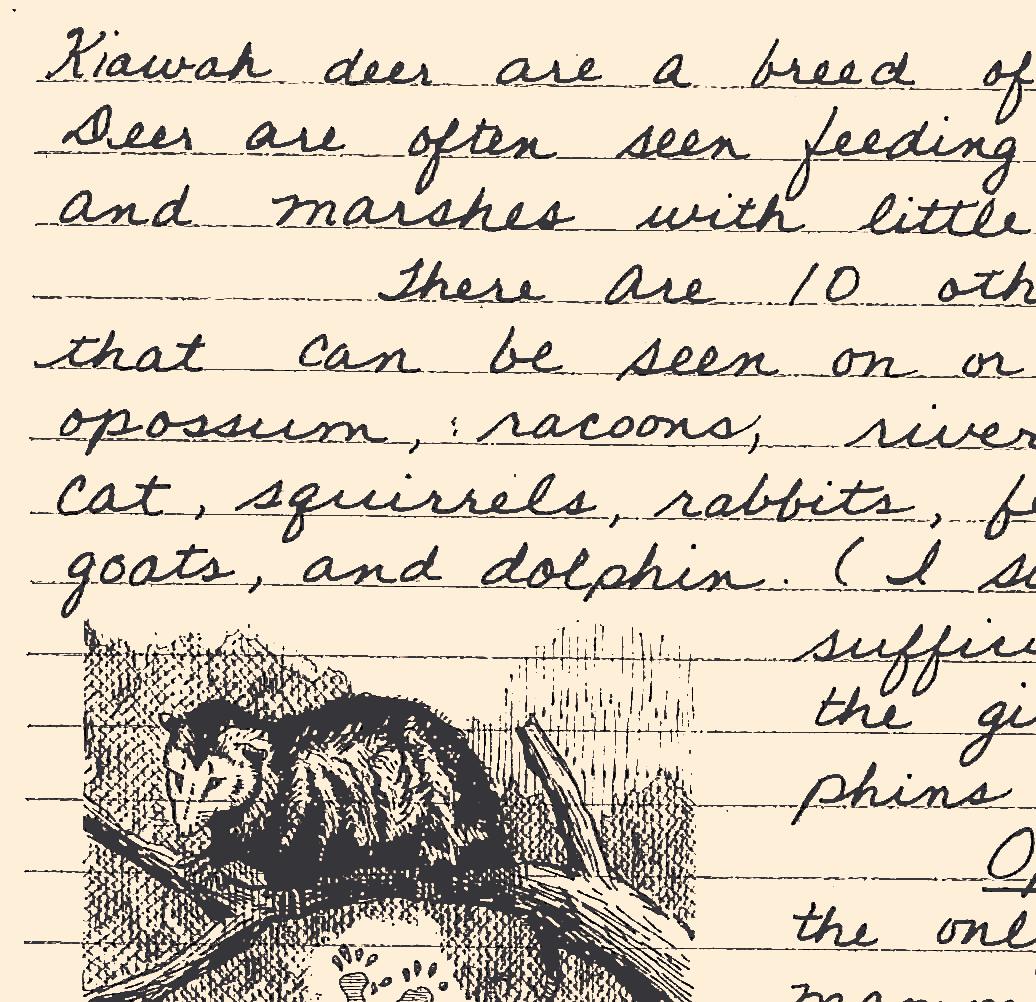 Kiawah deer are a breed of
Deer are often seen feeding
and marshes with little
There are 10 oth
that can be seen on or
opossum, racoons, river
cat, squirrels, rabbits, fe
goats, and dolphin. (I
the gi
phins
the onl